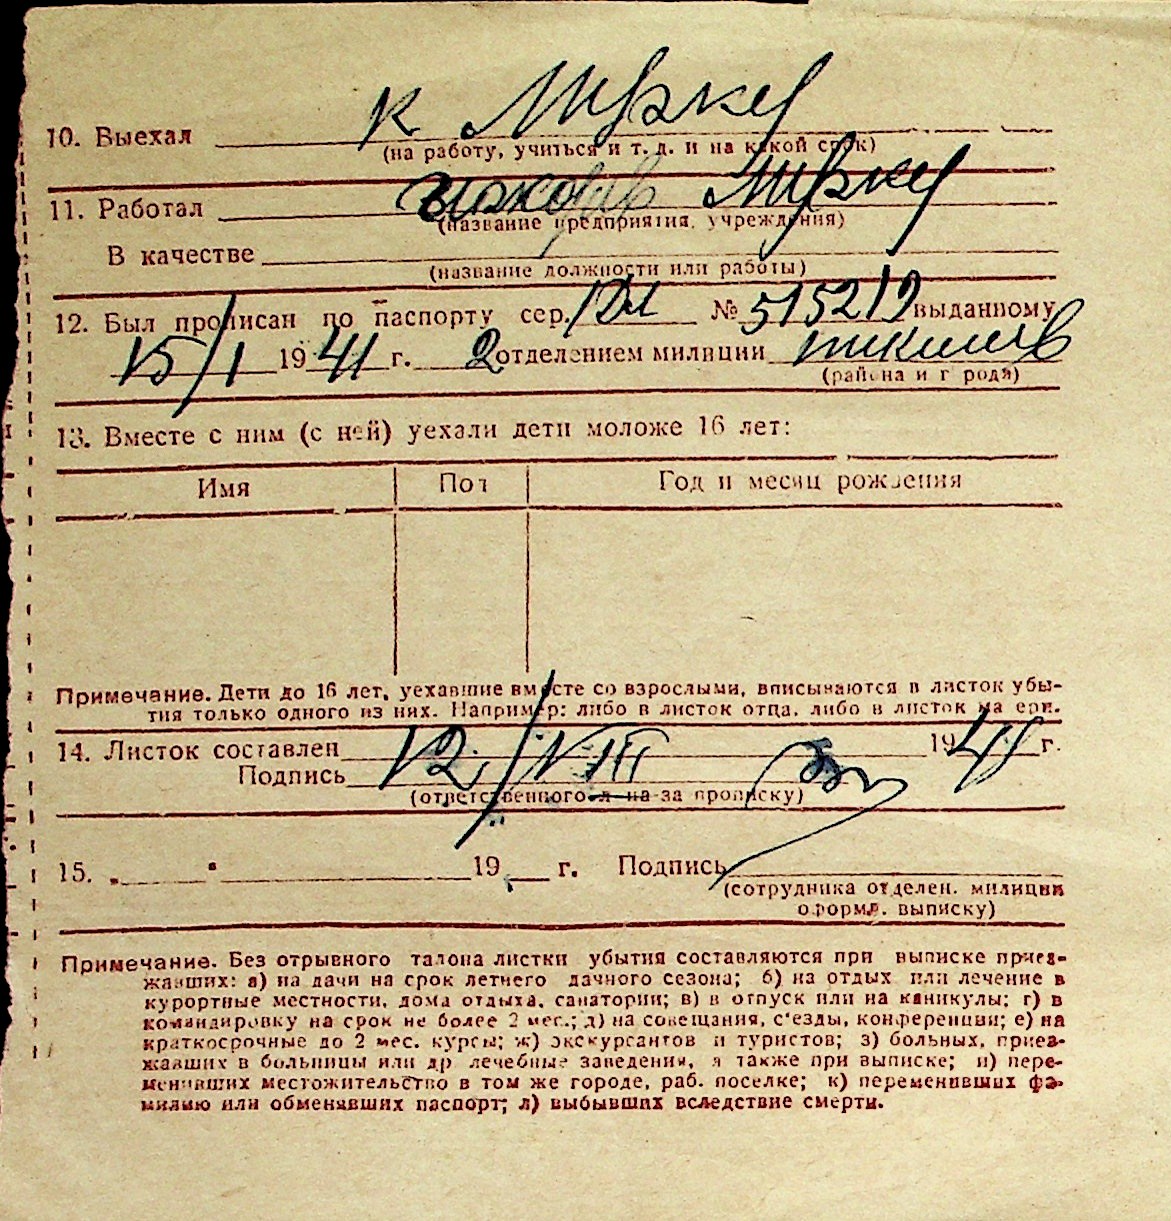 10. Выехал к мужу
(на работу, учиться и т. д. и на какой срок)
11. Работал мужу
(название предприятия, учреждения)
В качестве
(название должности или работы)
12. Был прописан по паспорту сер. № 515219 выданному
15/I 1941 г. 2 отделением милиции
(района и города)
13. Вместе с ним (с ней) уехали дети моложе 16 лет:
Имя Пол Год и месяц рождения
Примечание. Дети до 16 лет, уехавшие вместе со взрослыми, вписываются в листок убы-
тия только одного из них. Например: либо в листок отца, либо в листок матери.
14. Листок составлен 12/VIII 1941 г.
Подпись
(ответственного л-на за прописку)
15. „ " 19 г. Подпись
(сотрудника отделен. милиции
оформл. выписку)
Примечание. Без отрывного талона листки убытия составляются при выписке приез-
жавших: а) на дачи на срок летнего дачного сезона; б) на отдых или лечение в
курортные местности, дома отдыха, санатории; в) в отпуск или на каникулы; г) в
командировку на срок не более 2 мес.; д) на совещания, с'езды, конференции; е) на
краткосрочные до 2 мес. курсы; ж) экскурсантов и туристов; з) больных, приез-
жавших в больницы или др лечебные заведения, а также при выписке; и) пере-
менивших местожительство в том же городе, раб. поселке; к) переменивших фа-
милию или обменявших паспорт; л) выбывших вследствие смерти.